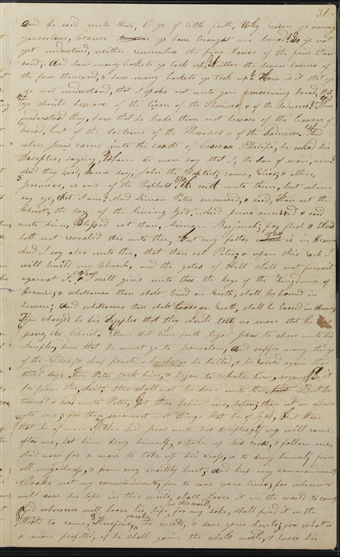 31
and he said unto them, O ye of little faith, Why reason ye among
yourselves, because ye have brought no bread? Do not
yet understand, neither remember the five loaves of the five thou
sand, And how many baskets ye took up? Neither the seven loaves of
the four thousand, & how many baskets ye took up? How is it that ye
do not understand, that I spake not unto you concerning bread, that
ye should beware of the leven of the Pharisees & of the Saducees? Then
understood they, how that he bade them not beware of the leaven of
bread, but of the doctrine of the Pharisees & of the Saducees. And
when Jesus came into the coasts of Cesarea Philipi, he asked his
Disciples, saying, Whom do men say that I, the Son of man, am?
And they said, some say, John the Baptist; some, Elias; & others,
Jeremias, or one of the Prophets. He saith unto them, but whom
say ye, that I am? And Simon Peter answered, & said, Thou art the
Christ, the son of the liveing God. And Jesus answered & said
unto him, Blessed art thou, Simon Barjona; for flesh & blood
hath not revealed this unto thee, but my father who is in Heaven
And I say also unto thee, that thou art Peter, & upon this rock I
will build my Church, and the gates of Hell shall not prevail
against it. And I will give unto thee the keys of the Kingdom of
heaven; & whatsoever thou shalt bind on Earth, shall be bound in
heaven; And whatsoever thou shalt loose on Earth, shall be loosed in heaven.
Then charged he his deciples that they should tell no man that he was
Jesus, the Christ. From that time forth began Jesus to shew unto his
deciples, how that he must go to Jerusalem, and suffer many things
of the Elders & chief priests, & be killed, & be raised again the
third day. Then Peter took him, & began to rebuke him, saying, Be it
far from thee, Lord; this shall not be unto thee. But he
turned & said unto Peter, Get thee behind me, Satan; thou art an offence
unto me; for thou savourest not the things that be of God, but those
that be of men. Then said Jesus unto his deciples, If any will come
after me, let him deny himself, & take up his cross, & follow me.
And now for a man to take up his cross, is to deny himself from
all ungodliness, & from every worldly lust, and keep my commandments.
Brake not my commandments, for to save your lives; for whosoever
will save his life in this world, shall loose it in the world to come.
And whosoever will loose his life, in this world, for my sake, shall find it in the
world to come. Therefore, forsake the world, & save your souls; for what is
a man profited, if he shall gain the whole world, & lose his